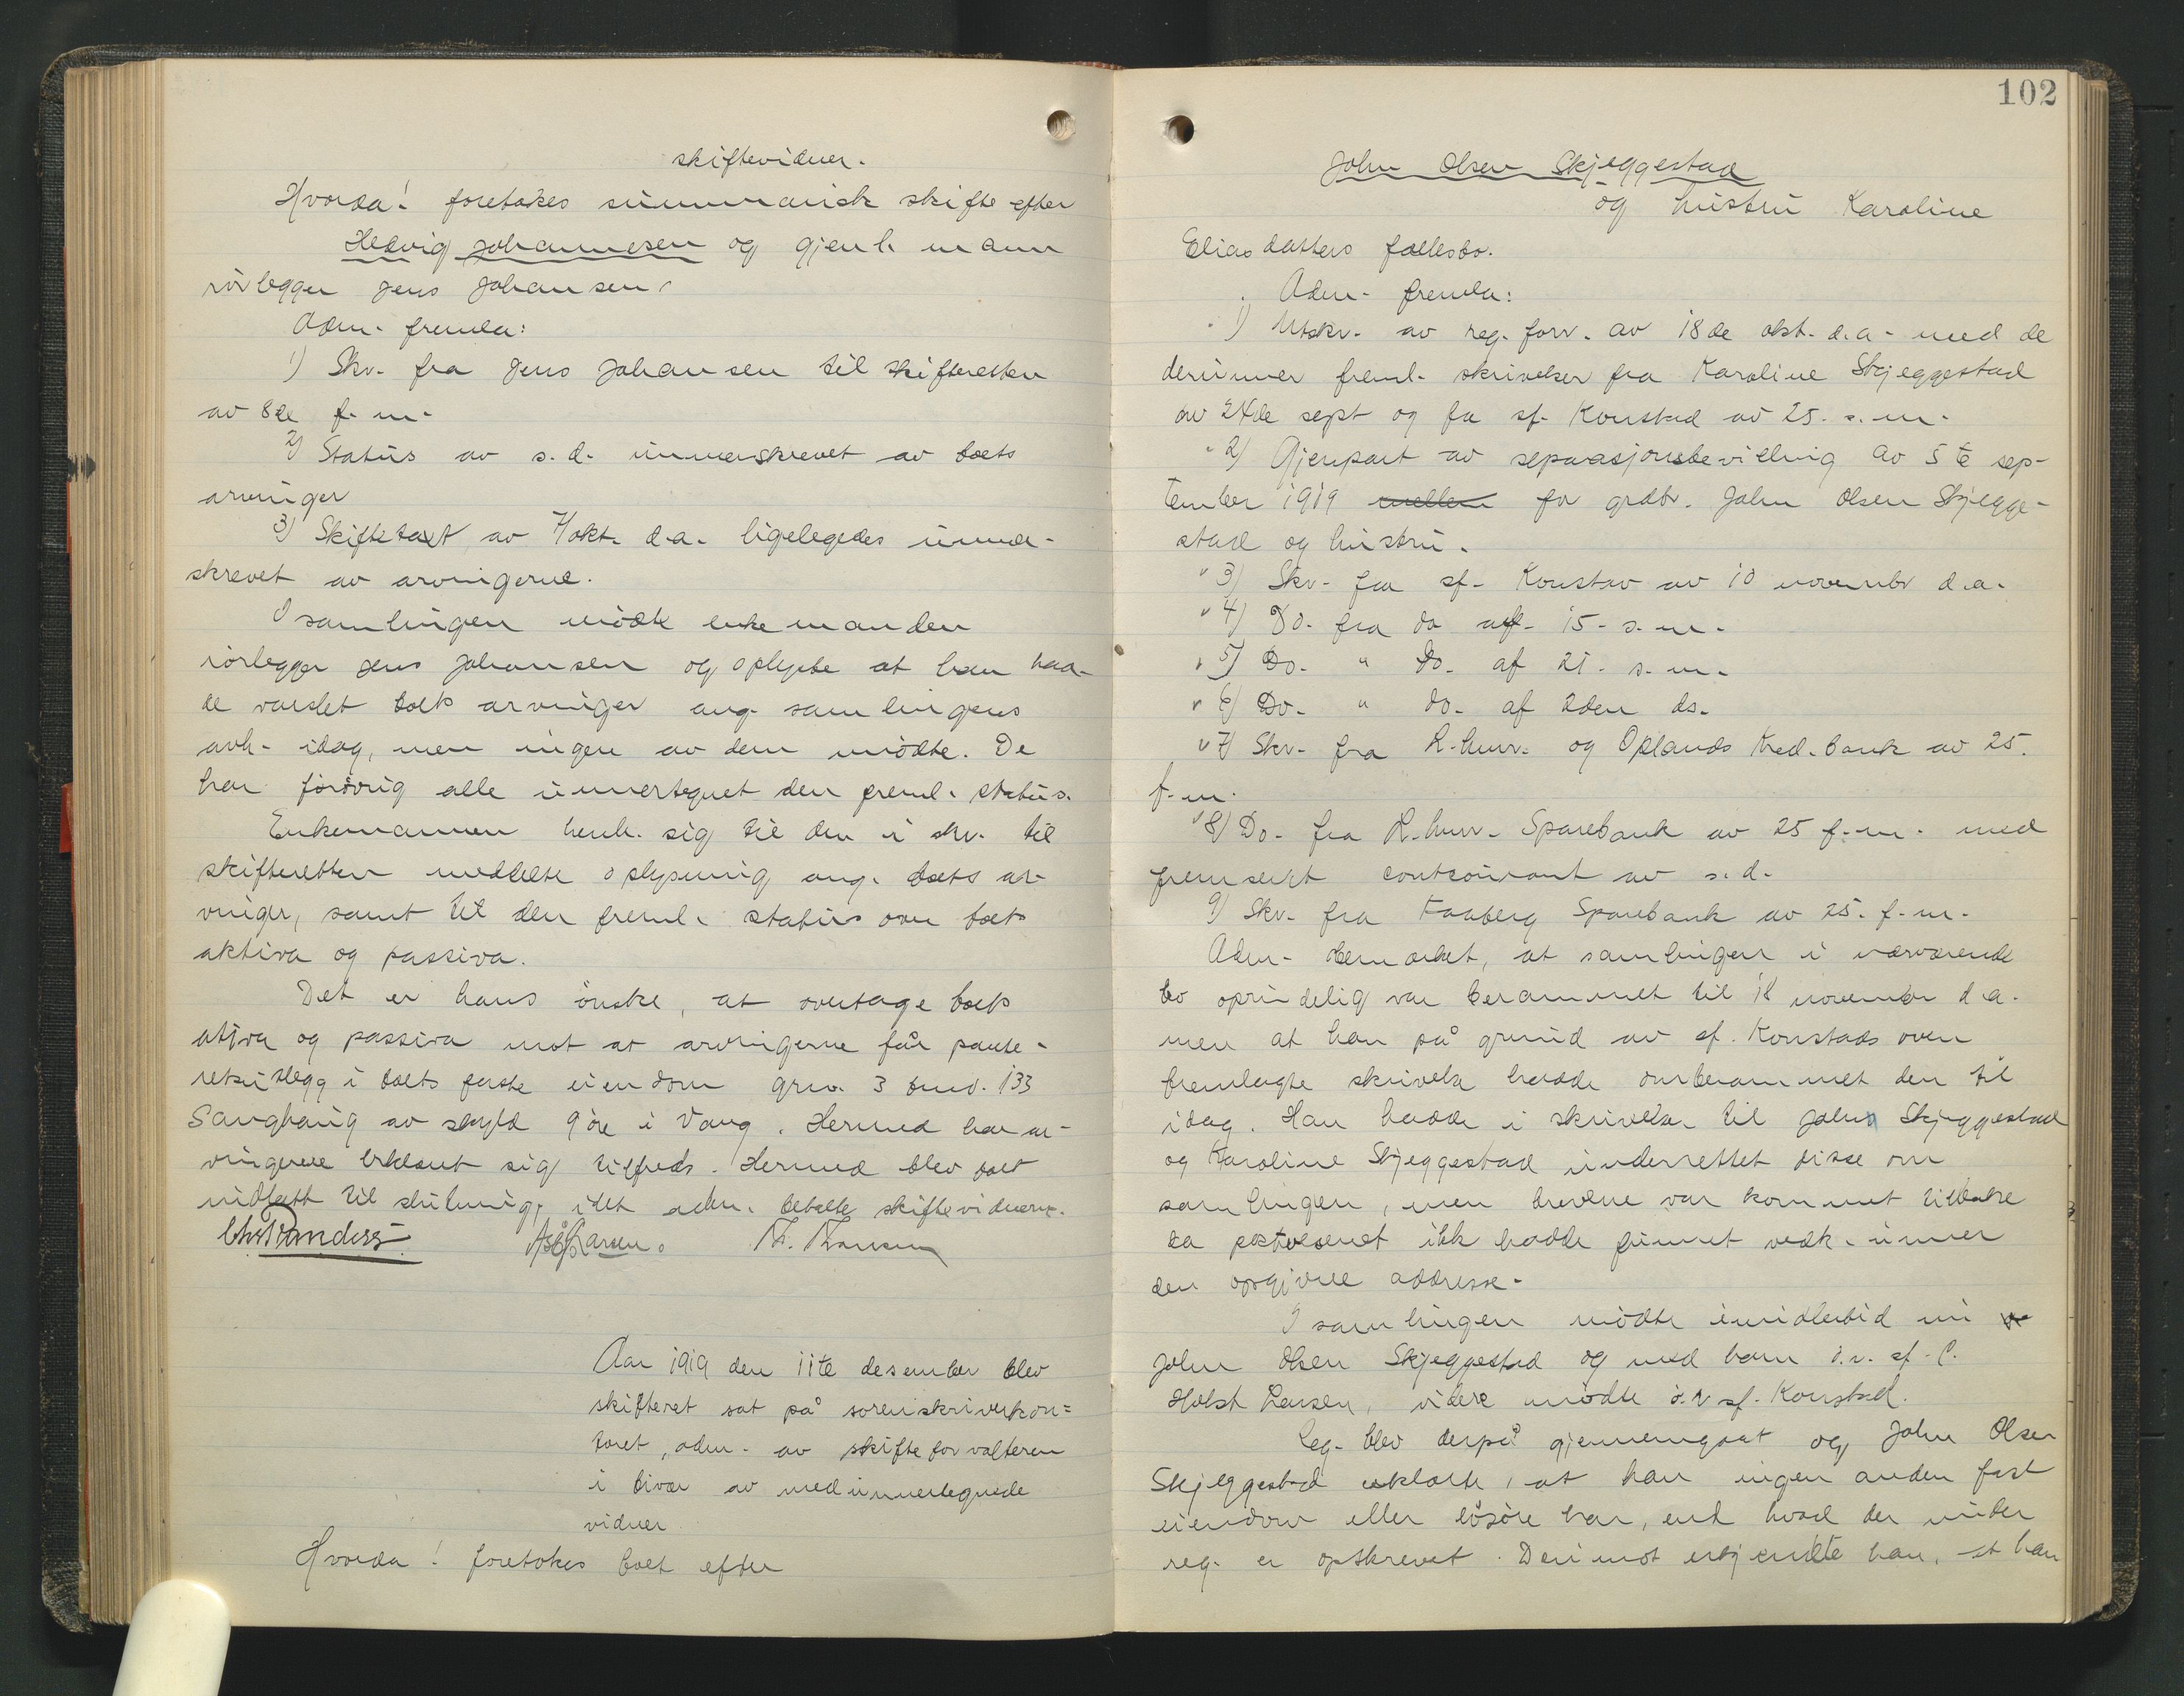 skiftevidner.
Hvorda! foretokes summarisk skifte efter
Hedvig Johannesen og gjenl. mann
rörlegger Jens Johansen.
Adm. fremla:
1) Skr. fra Jens Johansen til skifteretten
av 8de f.m.
2) Status av s.d. unnerskrevet av boets
arvinger
3) Skiftetaxt av 7/okt. d.a. ligelegedes unner-
skrevet av arvingerne.
I samlingen mödte enkemanden
rörlegger Jens Johansen og oplyste at han had-
de varslet boets arvinger ang. samlingens
avh. idag, men ingen av dem mödte. De
har forövrig alle unnertegnet den freml. status.
Enkemannen henh. sig til den i skr. til
skifteretten meddelte oplysning ang. boets ar-
vinger, samt til den freml. status over boets
aktiva og passiva.
Det er hans önske, at overtage boets
aktiva og passiva mot at arvingerne får pante-
retsutlegg i boets faste eiendom grn. 3 brno. 133
Sanghaug av skyld 9 öre i Vang. Hermed har ar-
vingerne erklært sig tilfreds. Hermed blev boet
utsatt til slutning, idet adm. betalte skiftevidnerne.
Larsen. Th.
Aar 1919 den 11te desember blev
skifteret sat på sorenskriverkon=
toret, adm. av skifteforvalteren
i bivær av medunnertegnede
vidner
Hvorda! foretokes boet efter
102
John Olsen Skjeggestad
og hustru Karoline
Eliasdatters fællesbo.
Adm. fremla:
1) Utskr. av reg. forr. av 18de okt. d.a. med de
derunner freml. skrivelser fra Karoline Skjeggestad
av 24de sept og fra sf. Konstad av 25. s.m.
" 2) Gjenpart av separasjonsbevilling av 5te sep-
tember 1919 mellem for grdbr. John Olsen Skjegge-
stad og hustru.
" 3) Skr. fra sf. Konstad av 10 novembr d.a.
" 4) Do. fra do af 15. s.m.
" 5) Do. " Do. af 21. s.m.
" 6) Do. " do. af 2den ds.
" 7) Skr. fra L.hmr. og Oplands Kred.bank av 25.
f.m.
" 8) Do. fra L.hmr. Sparebank av 25 f.m. med
fremsendt contocourant av s.d.
9) Skr. fra Faaberg Sparebank av 25. f.m.
Adm. bemærket, at samlingen i nærværende
bo oprindelig var berammet til 18 november d.a.
men at han på grund av sf. Konstads oven
fremlagte skrivelse hadde omberammet den til
idag. Han hadde i skrivelser til John Skjeggestad
og Karoline Skjeggestad underrettet disse om
samlingen, men brevene var kommet tilbake
da postvesenet ikke hadde funnet vedk. unner
den opgivne addresse.
I samlingen mödte imidlertid nu
John Olsen Skjeggestad og med ham o.r. sf. C.
Holst Larsen, videre mödte o.r sf. Konstad.
Reg. blev derpå gjennemgaat og John Olsen
Skjeggestad erklærte, at han ingen anden fast
eiendom eller lösöre har, end hvad der under
reg. er opskrevet. Derimot erkjendte han, at han